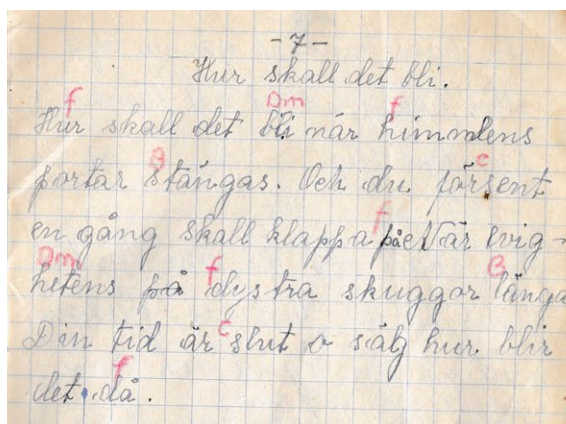 - 7 -
Hur skall det bli.
f Dm f
Hur skall det bli när himmlens
B c
portar stängas. Och du försent
f
en gång skall klappa på När evig-
Dm f B
hetens på dystra skuggor länga
c
Din tid är slut o säg hur blir
f
det då.